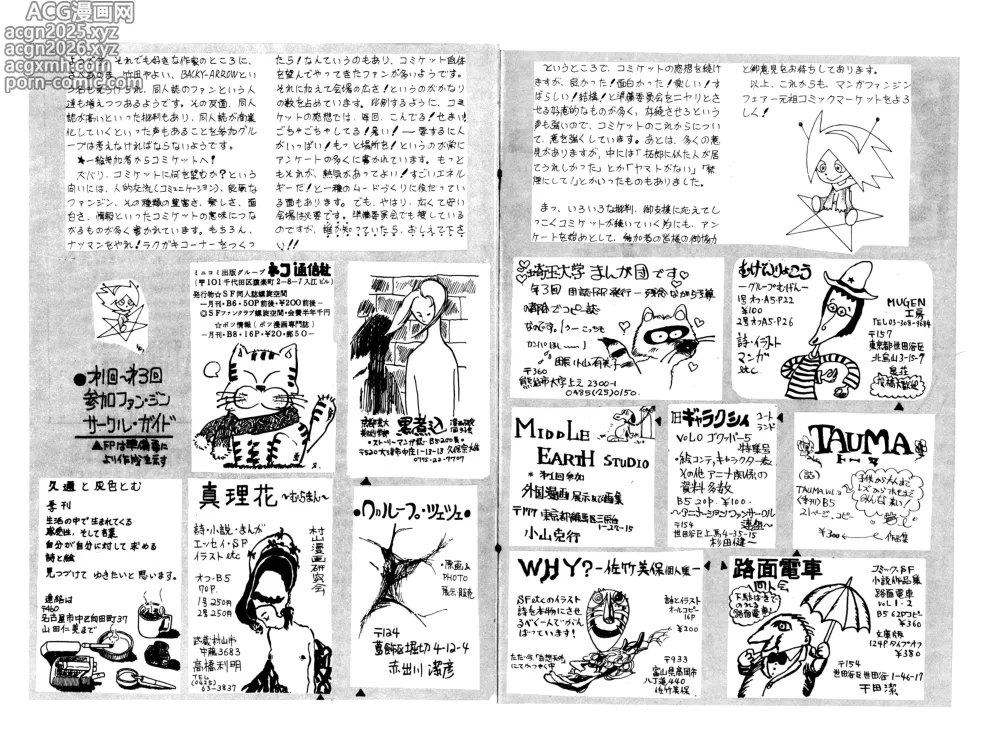 ACG漫画网
acgn2025.xyz
acgn2026.xyz
acgxmh.com
porn-comic.com
それでも好きな作家のところに、
竹田やよい、BACKY-ARROWとい
同人誌のファンという人
達も増えつつあるようです。その反面、同人
誌が高いといった批判もあり、同人誌が商業
化していくといった声もあることを参加グル
ープは考えなければならないようです。
★一般参加者からコミケットへ!
ズバリ、コミケットに何を望むか?という
向いには、人的交流(コミュニケーション)、良質な
ファンジン、その種類の豊富さ、楽しさ、面
白さ、情報といったコミケットの意味につな
がるものが多く書かれています。もちろん、
ナッマンをやれ!ラクガキコーナーをつくっ
たら!なんていうのもあり、コミケット自体
を望んでやってきたファンが多いようです。
それに加えて会場の広さ!というのがかなり
の数を占めています。比例するように、コミ
ケットの感想では、毎回、こんでる!せまい!
ごちゃごちゃしてる!暑い!―要するに人
がいっぱい!もっと場所を!というのが常に
アンケートの多くに書かれています。もっと
もそれが、熱気があってよい!すごいエネル
ギーだ!と一種のムードづくりに役だってい
る面もあります。でも、やはり、広くて安い
会場は必要です。準備委員会でも捜している
のですが、誰か知っていたら、おしえて下さ
い!!
というところで、コミケットの感想を続け
ますが、良かった!面白かった!楽しい!す
ばらしい!結構!と準備委員会をニヤリとさ
せる好意的なものが多く、存続させろという
声も強いので、コミケットのこれからについ
て、意を強くしています。あとは、多くの意
見がありますが、中には「拓郎に似た人が居
てうれしかった」とか「ヤマトがない」「禁
煙にして!」とかいったものもありました。
まっ、いろいろな批判、御支援に応えてし
つこくコミケットが続いていく為にも、アン
ケートを始めとして、参加者の皆様の御協力
と御意見をお待ちしております。
以上、これからも、マンガファンジン
フェアー元祖コミックマーケットをよろ
しく!
●オ1回〜オ3回
参加ファンジン
サークル・ガイド
▲FPは準備会に
より作成を示す
ミニコミ出版グループ ネコ通信社
(〒101千代田区猿楽町2-8-7入江ビル)
発行物☆SF同人誌螺旋空間
―月刊・B6・50P前後・¥200前後―
◎SFファンクラブ螺旋空間・会費半年千円
☆ボツ情報(ボツ漫画専門誌)
―月刊・B8・16P・¥20・郵50―
黒煮込
・ストーリーマンガ誌・B5・200¥・
〒520大津市中庄1-13-13 久保宗大雄
0775-22-7707
埼玉大学 まんが団です♥
オ3回
〒360
熊谷市大字上之2300-1
0485(25)0150.
むげんりょこう
―グループむげん―
1号 オフA5・P22
¥100
2号 オフA5・P26
詩・イラスト
マンガ
etc.
MUGEN
工房
TEL 03-308-9684
〒157
東京都世田谷区
北烏山3-15-9
(投稿大歓迎)
久遠と灰色とむ
季刊
生活の中で生まれてくる
感受性、そして言葉
自分が自分に対して求める
詩と絵
見つづけて ゆきたいと思います。
連絡は
〒460
名古屋市中区向田町37
山田仁美まで
真理花
〜むらまん〜
詩・小説・まんが
エッセイ・SF
イラスト etc
オフ・B5
70P.
1号 250円
2号 250円
村山漫画研究会
武蔵村山市
中藤3683
高橋利明
TEL
(0425)
63-3837
●グループ・ツェツェ●
・原画&
PHOTO
展示・販売
〒124
葛飾区堀切4-12-4
赤出川潔彦
MIDDLE
EARTH STUDIO
*オ1回参加
外国漫画展示及び画集
〒177 東京都練馬区三原台
1-27-15
小山克行
旧ギャラクシィ コートランド
VOL.0 ゴワッパー5
特集号
・絵コンテ、キャラクター表
その他アニメ関係の
資料多数
B5. 20P. ¥100.
〜アニメーションファンサークル
連絡〜
〒154
世田谷区上馬4-35-15
杉田健一
TAUMA
(記)
TAUMA VOL.2
(季刊)B5
21ページ.コピー
¥300
作品集
WHY?―佐竹美保個人誌―
SF.etc.のイラスト
詩を本物にさせ
るべく一人でがん
ばっています!
詩とイラスト
オールコピー
16P
¥200
〒933
富山県高岡市
八丁道440
佐竹美保
路面電車
下駄ばきで
のれる
路面電車!
コミック・SF
小説作品集
路面電車
VOL 1・2
B5 62Pコピー
¥360
文庫版
124P タイプオフ
¥380
〒154
世田谷区世田谷1-46-17
干田潔